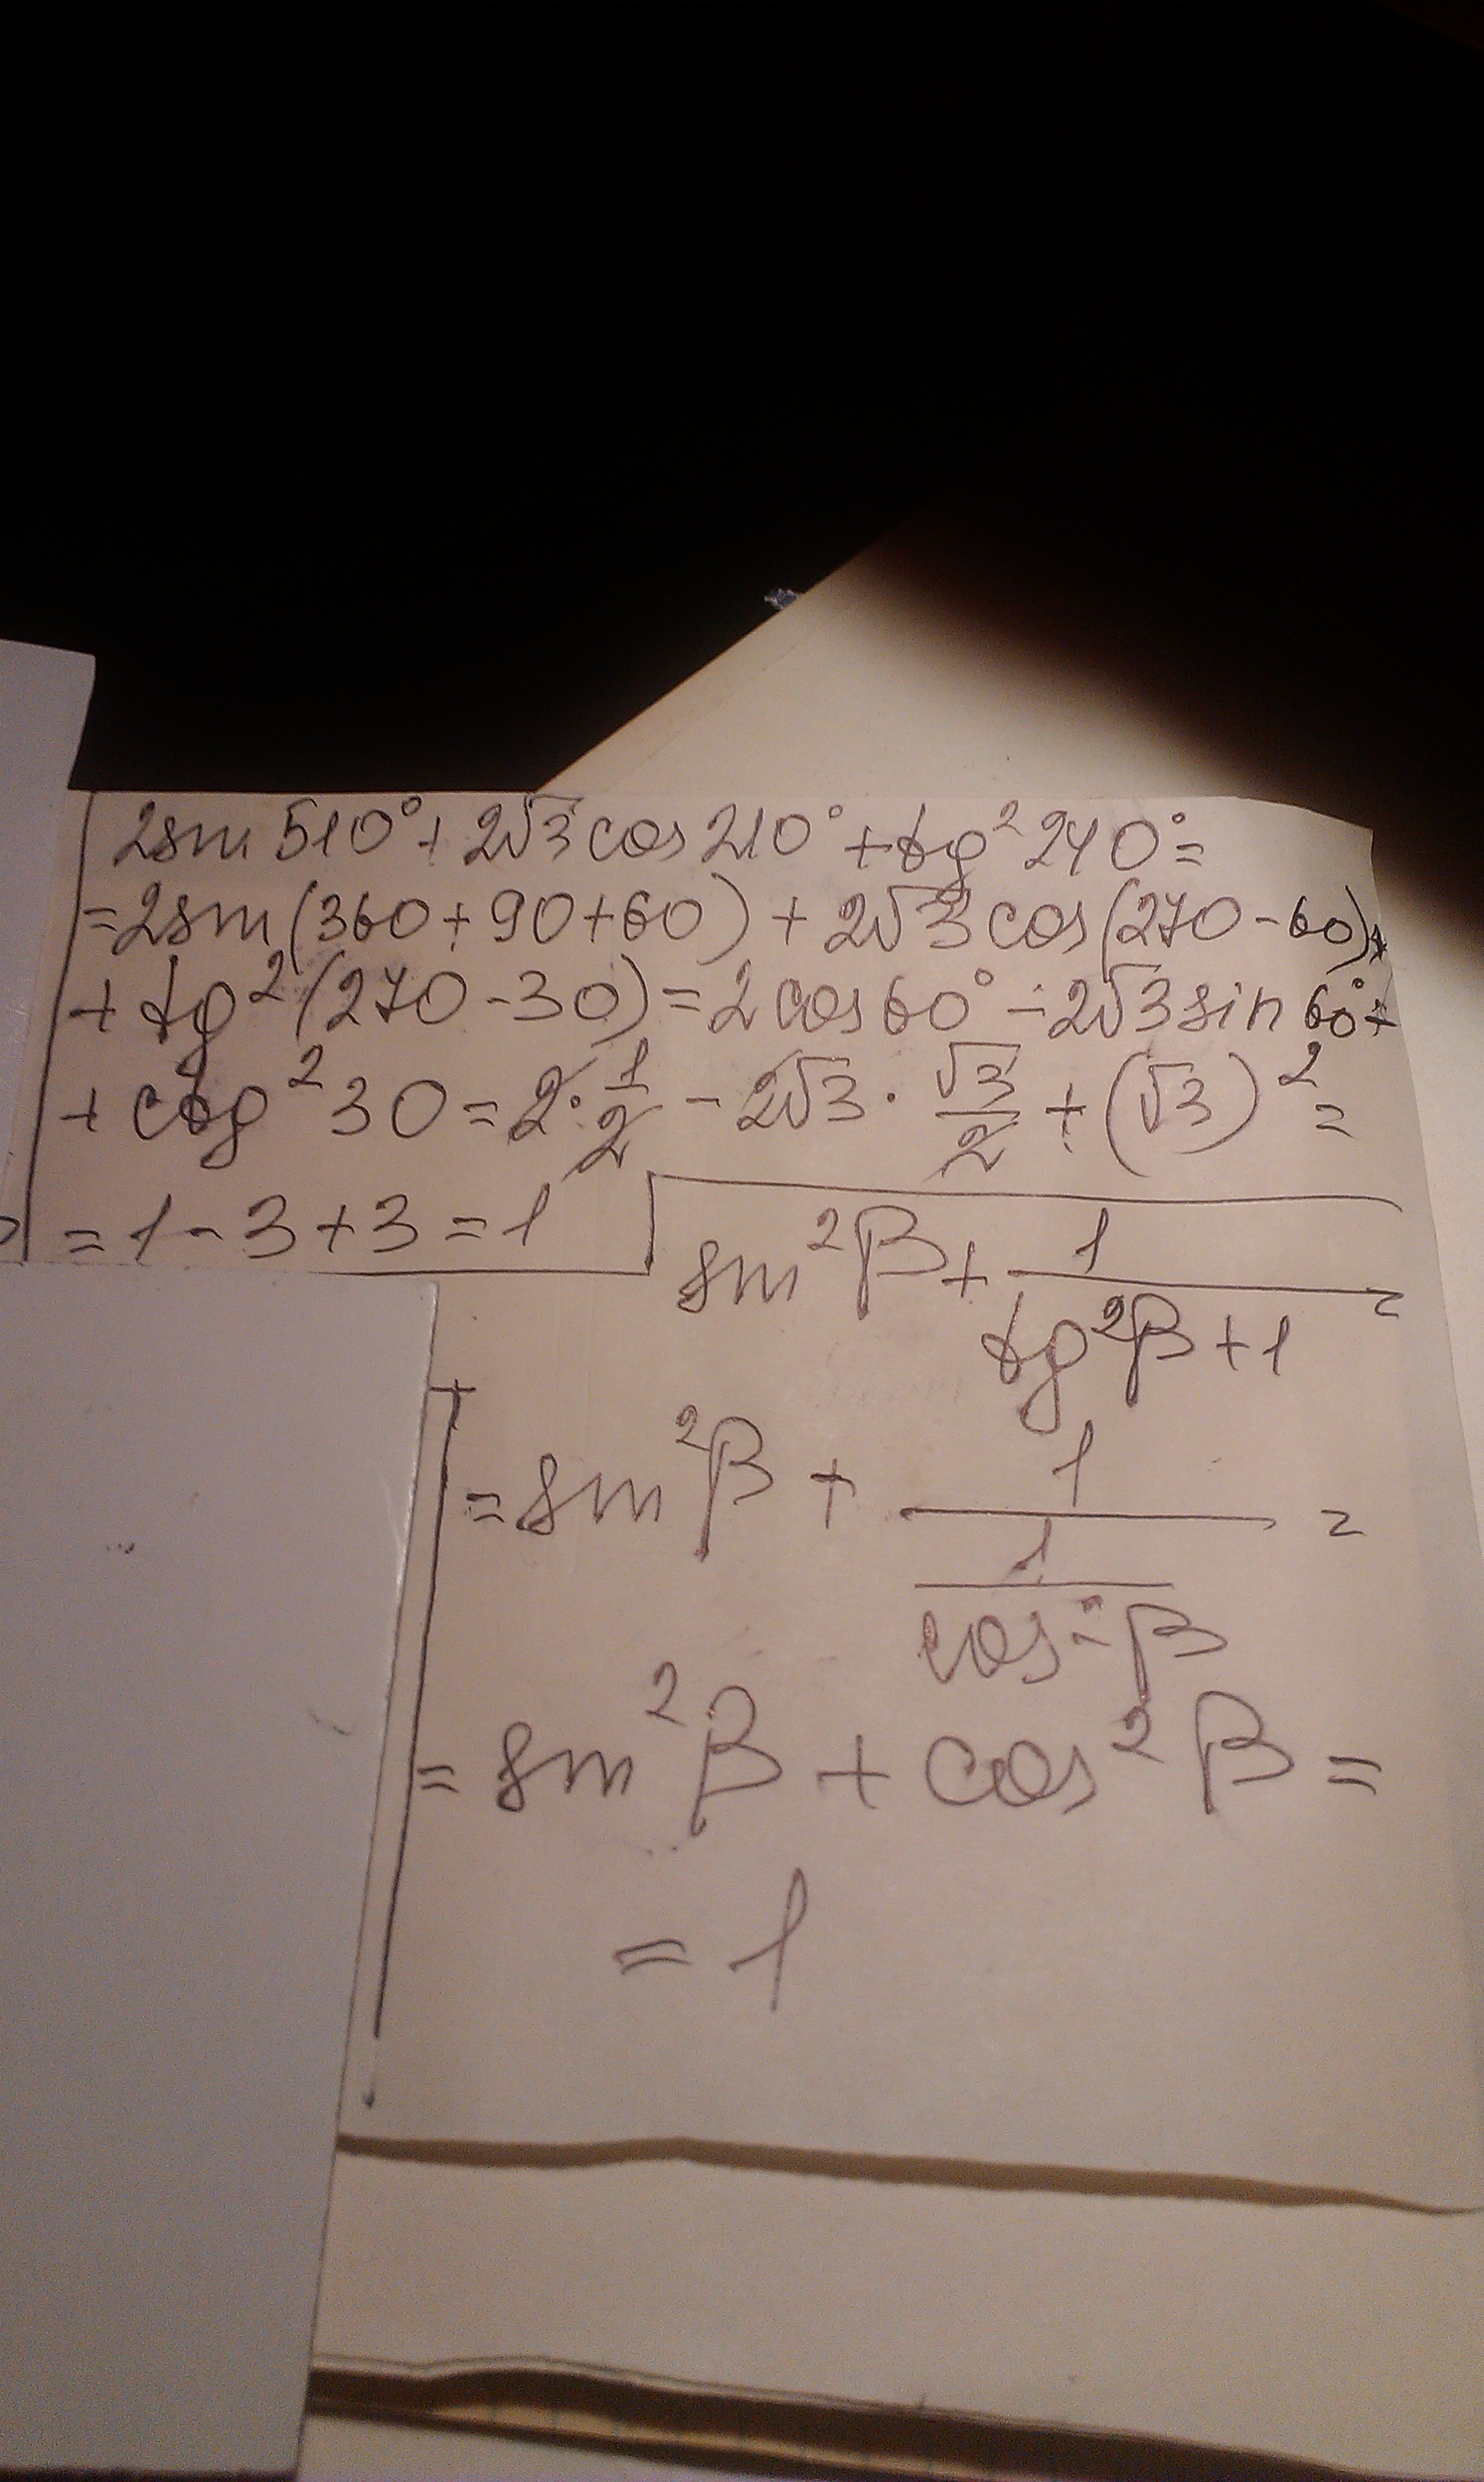 2sin 510° + 2√3 cos 210° + tg² 240° =
= 2sin (360 + 90 + 60) + 2√3 cos (270 - 60) +
+ tg² (270 - 30) = 2 cos 60° - 2√3 sin 60° +
+ ctg² 30 = 2 · 1/2 - 2√3 · √3/2 + (√3)² =
= 1 - 3 + 3 = 1
sin² β + 1/(tg² β + 1) =
= sin² β + 1/(1/cos² β) =
= sin² β + cos² β =
= 1